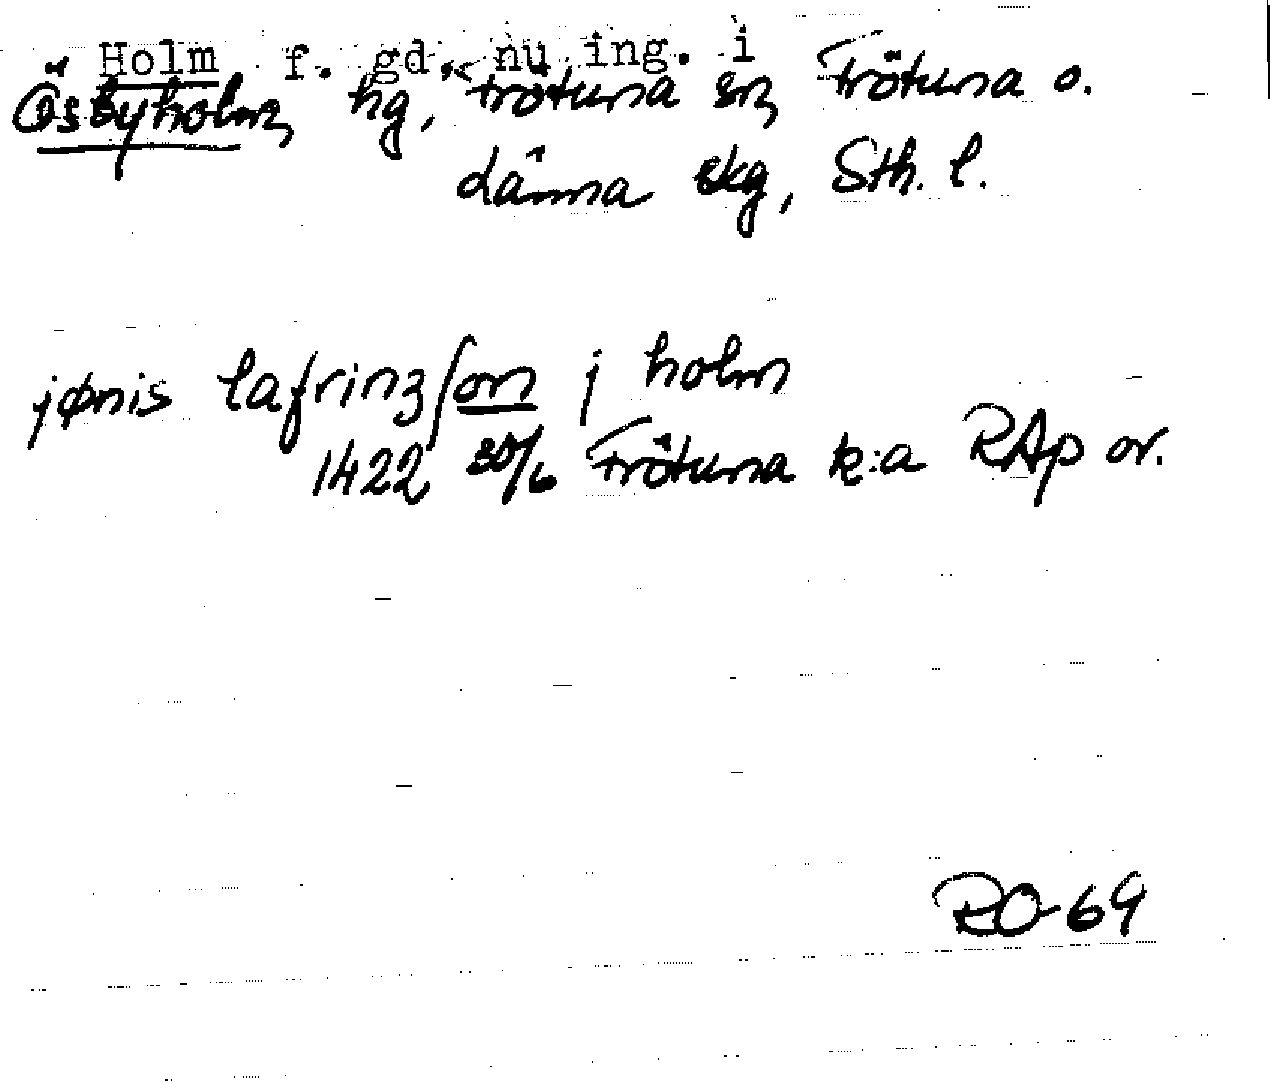 Holm f. gd, nu ing. i
Össbyholm, hg, Frötuna sn, Frötuna o.
länna skg, Sth. l.
jønis lafrinzson j holm
1422 30/6 Frötuna k:a RAp or.
RO-69